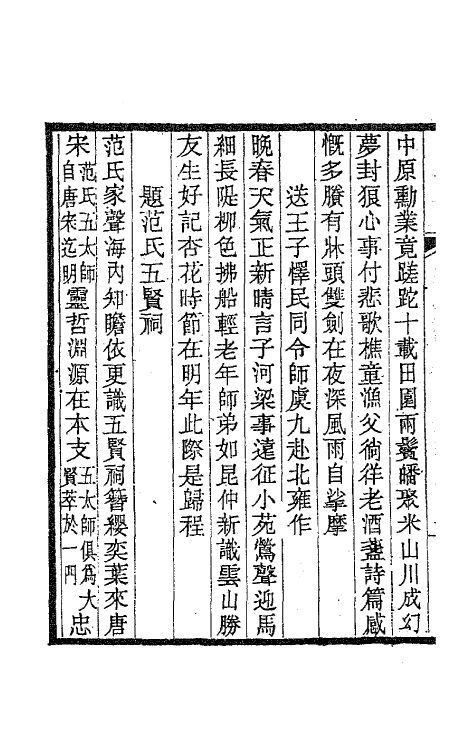 中原勳業竟蹉跎十載田園兩鬢皤聚米山川成幻
夢封狼心事付悲歌樵童漁父徜徉老酒盞詩篇感
慨多賸有牀頭雙劍在夜深風雨自挲摩
送王子懌民同令師虞九赴北雍作
晚春天氣正新晴言子河梁事遠征小苑鶯聲迎馬
細長隄柳色拂船輕老年師弟如昆仲新識雲山勝
友生好記杏花時節在明年此際是歸程
題范氏五賢祠
范氏家聲海內知瞻依更識五賢祠簪纓奕葉來唐
宋范氏五太師自唐來迄明靈哲淵源在本支五太師俱爲大賢萃於一門忠